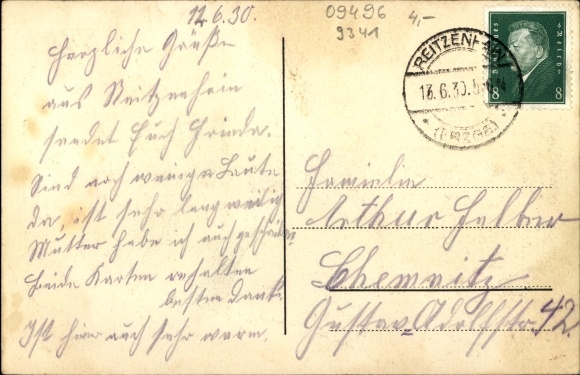 12.6.30.
09496
9341
4,-
Herzliche Grüße
aus Reitzenhain
sendet Euch Frieda.
Sind noch wenige Leute
da, ist sehr langweilig
Mutter habe ich auch geschrieben
beide Karten erhalten
besten Dank.
Ist hier auch sehr warm.
REITZENHAIN
13.6.30.
(ERZGEB)
Deutsches Reich
8 8
Familie
Arthur
Chemnitz
Gustav-Adolfstr. 42.